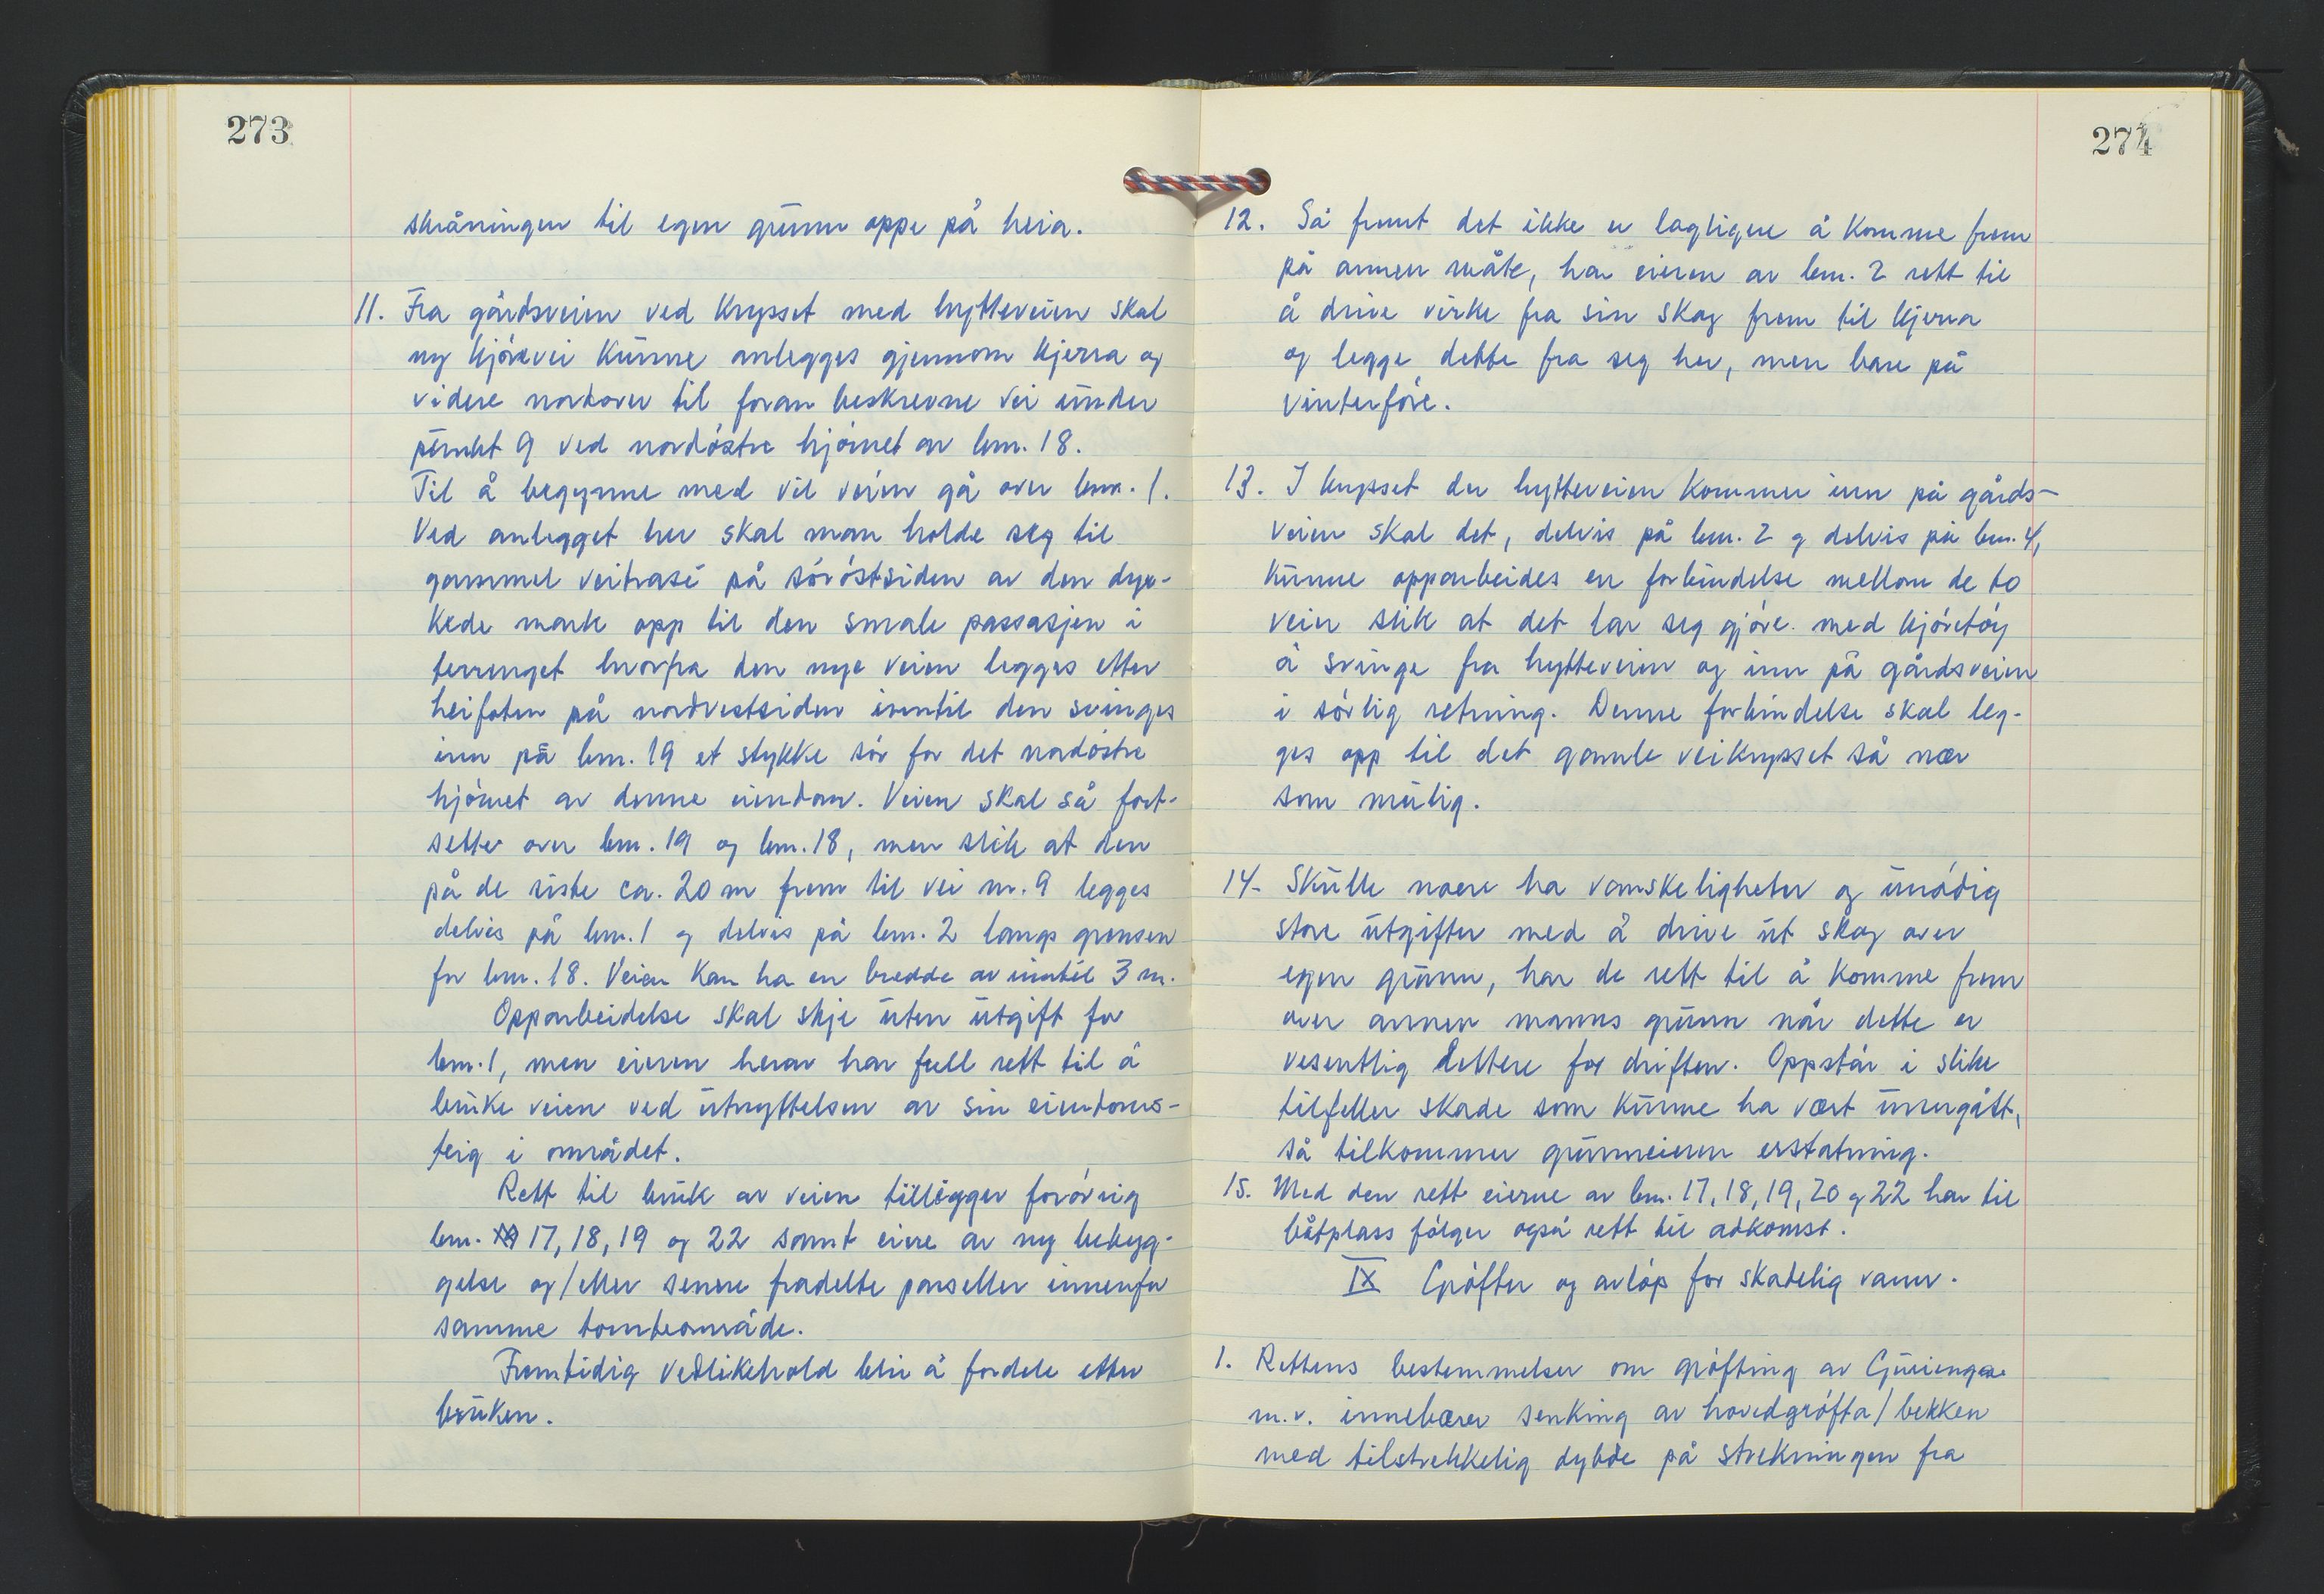 273
skråningen til egen grunn oppe på heia.
11. Fra gårdsveien ved krysset med hytteveien skal
ny kjørevei kunne anlegges gjennom kjerra og
videre nordover til foran beskrevne vei under
punkt 9 ved nordøstre hjørnet av bnr. 18.
Til å begynne med vil veien gå over bnr. 1.
Ved anlegget her skal man holde seg til
gammel veitrasé på sørøstsiden av den dyr-
kede mark opp til den smale passasjen i
terrenget hvorfra den nye veien legges etter
heifoten på nordvestsiden inntil den svinges
inn på bnr. 19 et stykke sør for det nordøstre
hjørnet av denne eiendom. Veien skal så fort-
sette over bnr. 19 og bnr. 18, men slik at den
på de siste ca. 20 m frem til vei nr. 9 legges
delvis på bnr. 1 og delvis på bnr. 2 langs grensen
for bnr. 18. Veien kan ha en bredde av inntil 3 m.
Opparbeidelse skal skje uten utgift for
bnr. 1, men eieren herav har full rett til å
bruke veien ved utnyttelsen av sin eiendoms-
teig i området.
Rett til bruk av veien tilligger forøvrig
bnr. 17, 18, 19 og 22 samt eiere av ny bebyg-
gelse og/eller senere fradelte parseller innenfor
samme tomteområde.
Fremtidig vedlikehold blir å fordele etter
bruken.
274
12. Så fremt det ikke er lagligere å komme frem
på annen måte, har eieren av bnr. 2 rett til
å drive virke fra sin skog frem til kjerra
og legge dette fra seg her, men bare på
vinterføre.
13. I krysset der hytteveien kommer inn på gårds-
veien skal det, delvis på bnr. 2 og delvis på bnr. 4,
kunne opparbeides en forbindelse mellom de to
veier slik at det lar seg gjøre. med kjøretøy
å svinge fra hytteveien og inn på gårdsveien
i sørlig retning. Denne forbindelse skal leg-
ges opp til det gamle veikrysset så nær
som mulig.
14. Skulle noen ha vanskeligheter og unødig
store utgifter med å drive ut skog over
egen grunn, har de rett til å komme frem
over annen manns grunn når dette er
vesentlig lettere for driften. Oppstår i slike
tilfeller skade som kunne ha vært unngått,
så tilkommer grunneieren erstatning.
15. Med den rett eierne av bnr. 17, 18, 19, 20 og 22 har til
båtplass følger også rett til adkomst.
IX Grøfter og avløp for skadelig vann.
1. Rettens bestemmelser om grøfting av
m.v. innebærer senking av hovedgrøfta/bekken
med tilstrekkelig dybde på strekningen fra